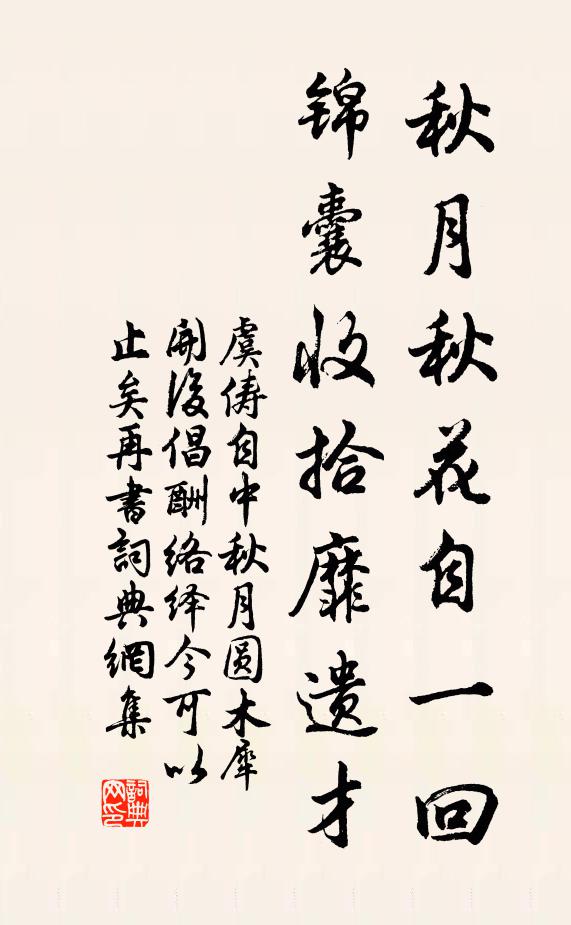 秋月秋花自一回
锦囊收拾靡遗才
虞俦自中秋月圆木犀
開後倡酬络绎今可以
止矣再書詞典網集
詞典网印